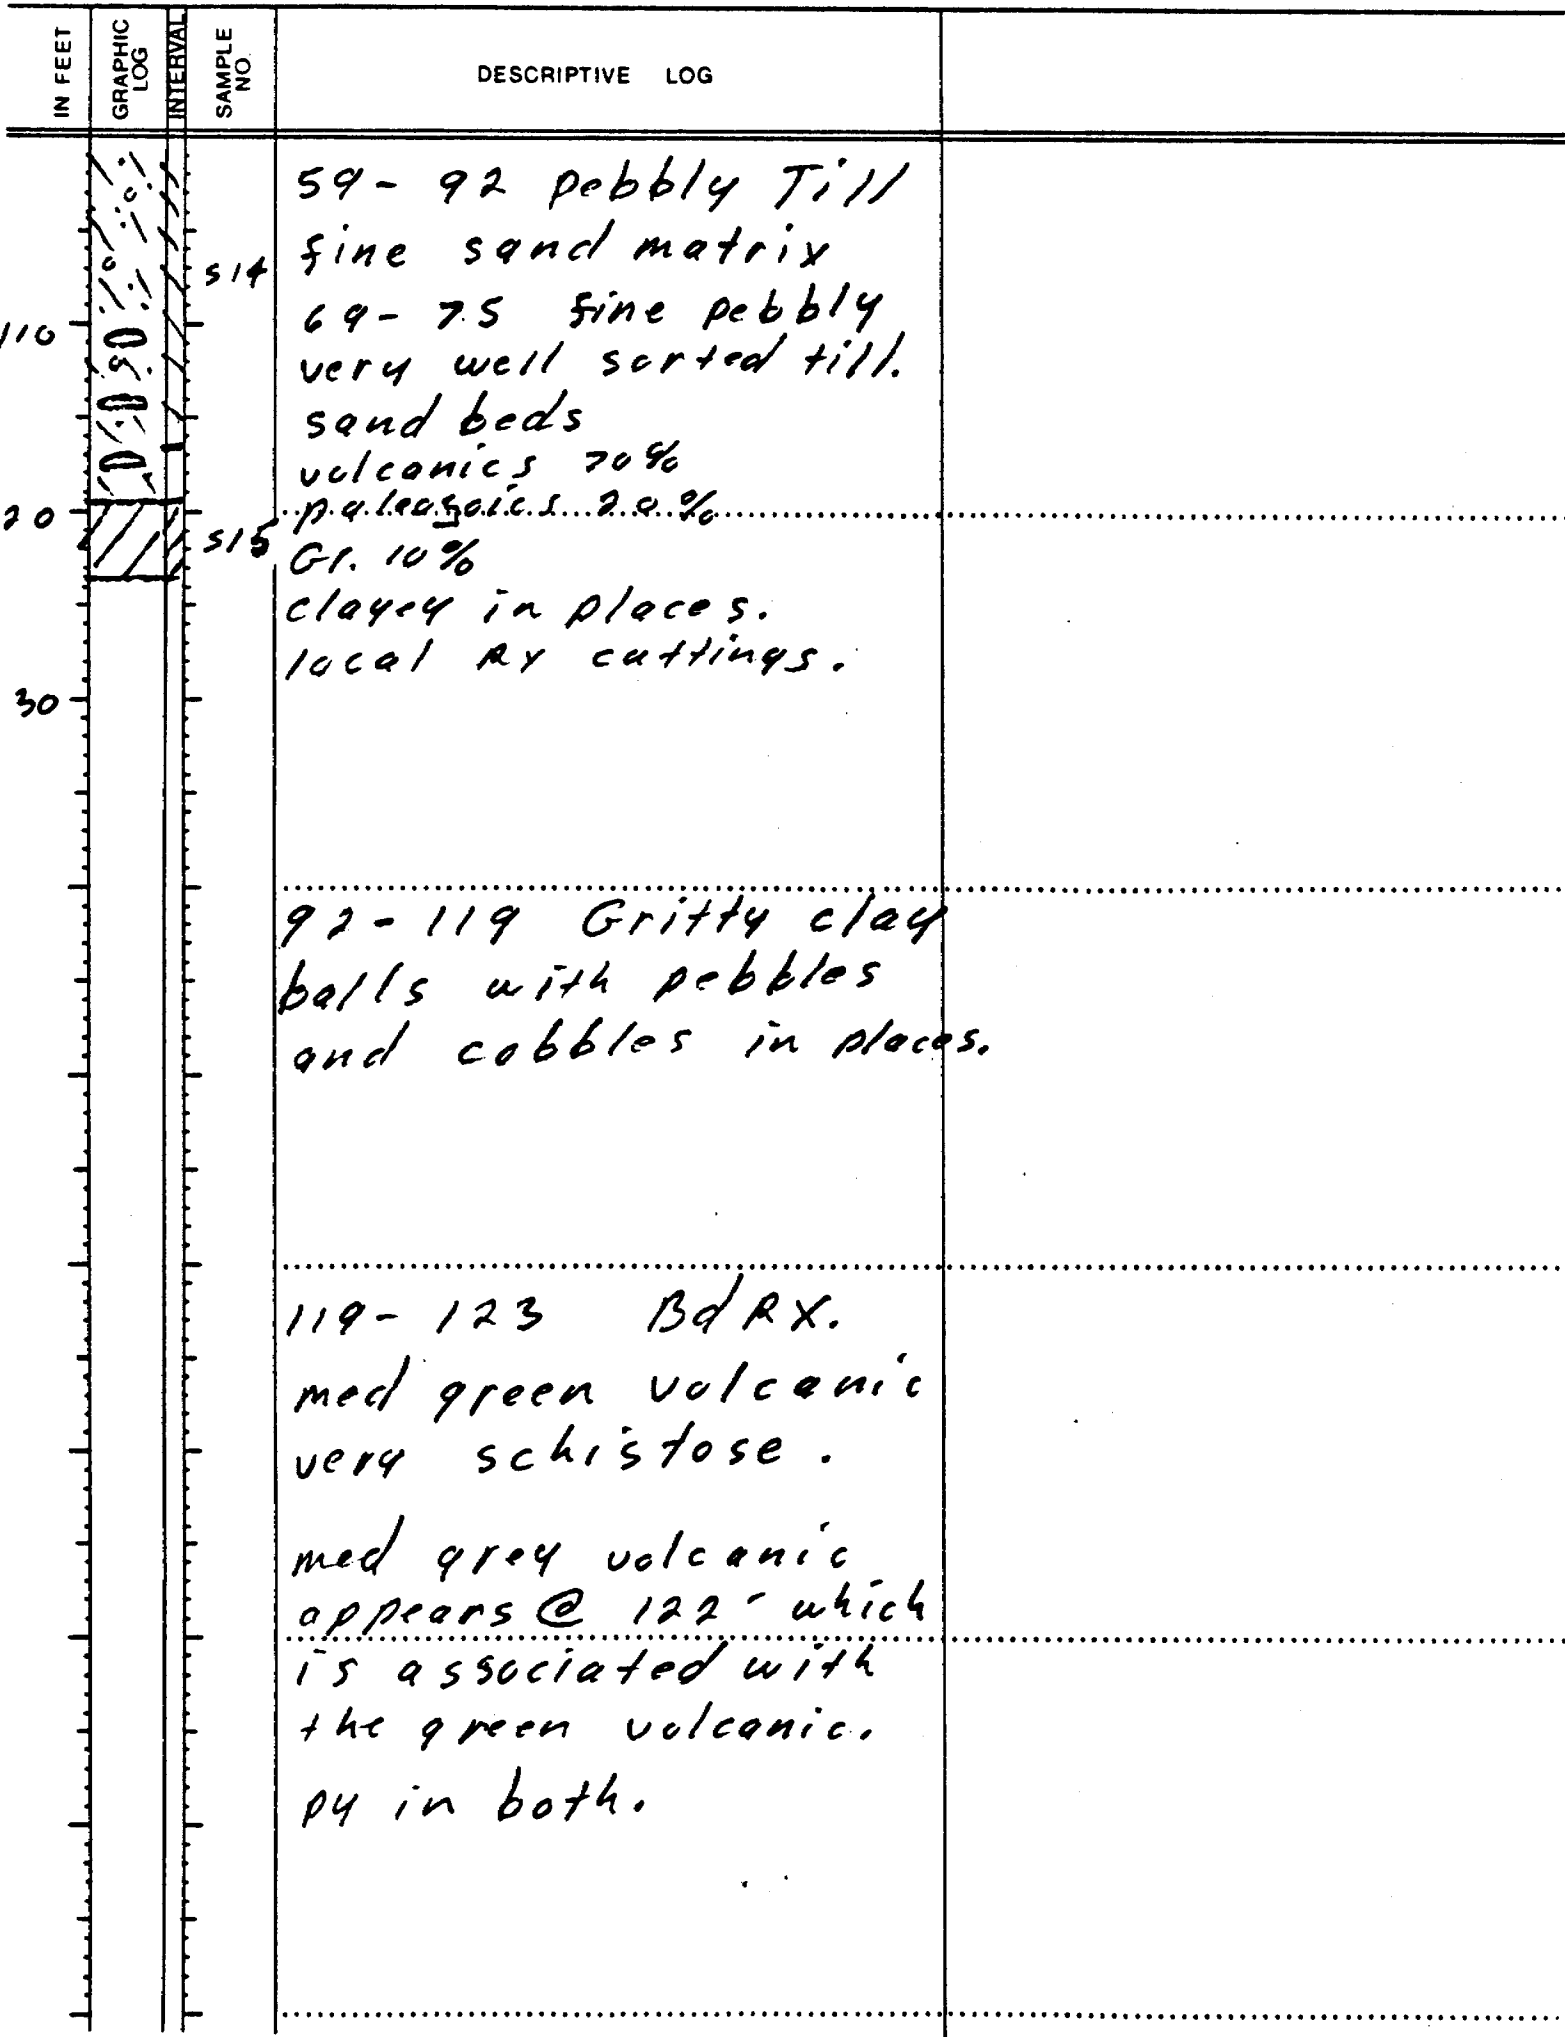 IN FEET
GRAPHIC LOG
INTERVAL
SAMPLE NO.
DESCRIPTIVE LOG
59 - 92 pebbly Till
fine sand matrix
S14
69 - 75 fine pebbly
110
very well sorted till.
sand beds
volcanics 70%
paleozoics 20%
20
S15
Gr. 10%
clayey in places.
local RX cuttings.
30
92 - 119 Gritty clay
balls with pebbles
and cobbles in places.
119 - 123 Bd RX.
med green volcanic
very schistose.
med grey volcanic
appears @ 122' which
is associated with
the green volcanic.
py in both.